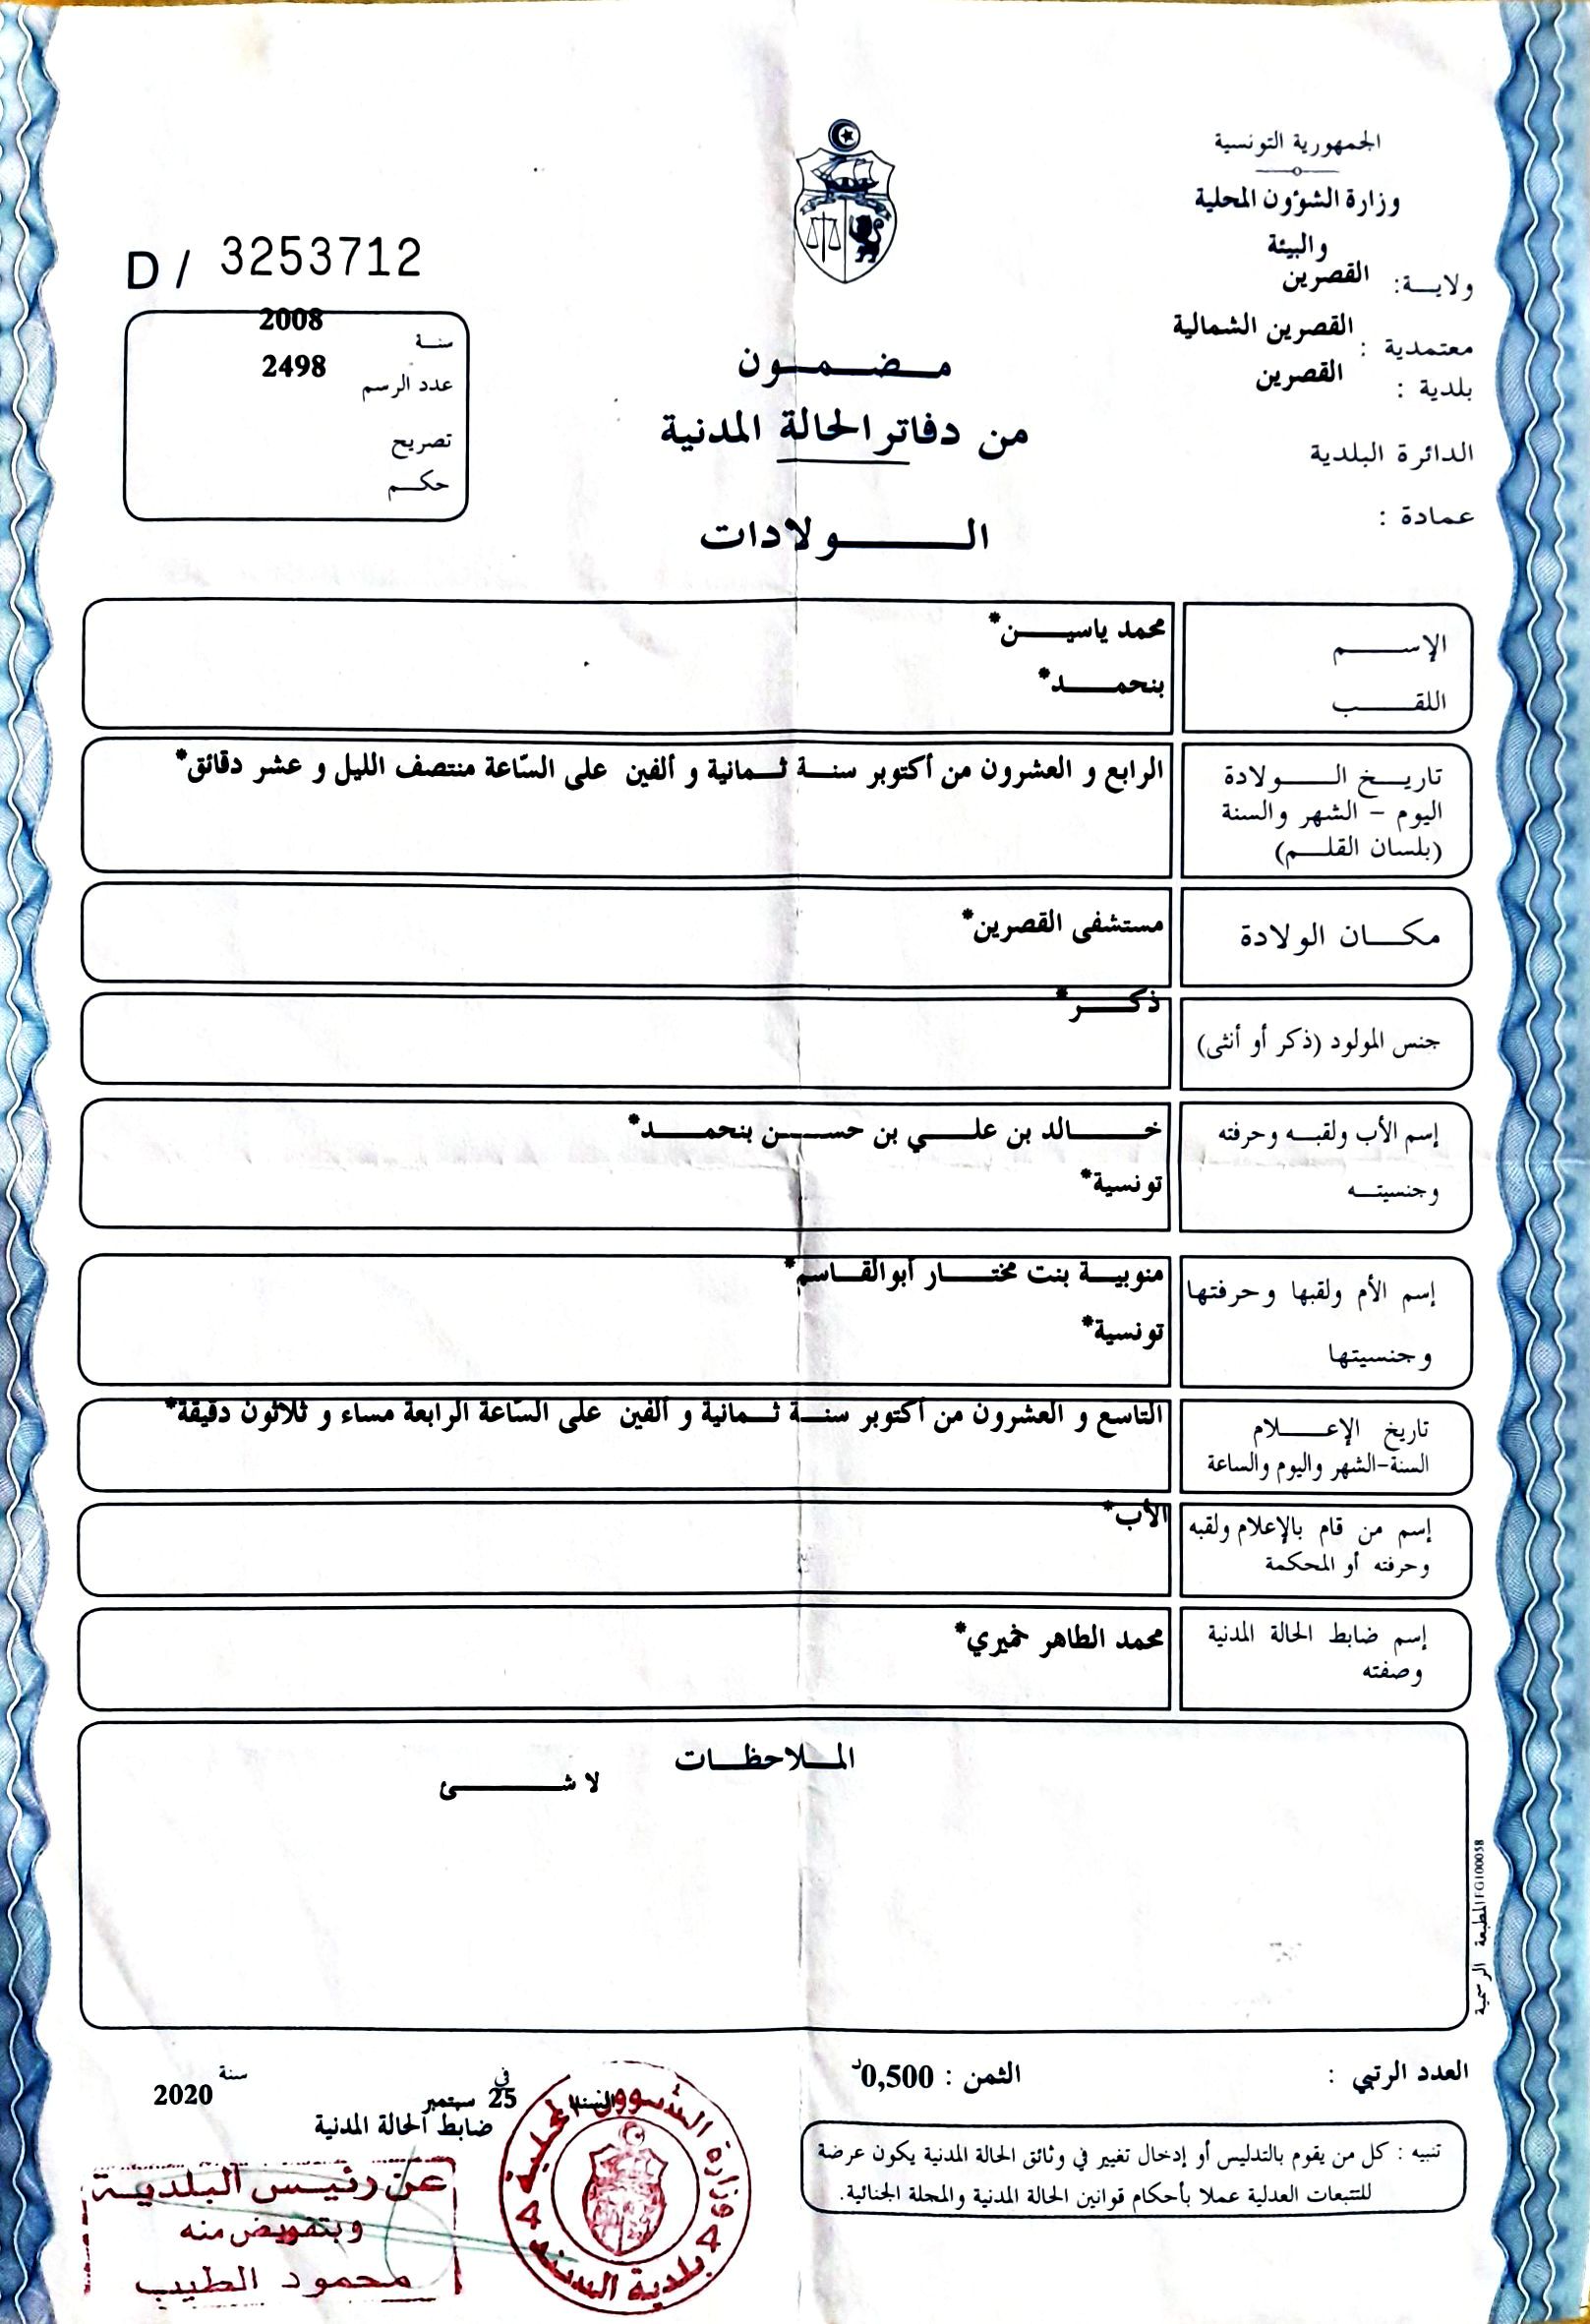 الجمهورية التونسية
وزارة الشؤون المحلية
والبيئة
ولايـة: القصرين
معتمدية : القصرين الشمالية
بلدية : القصرين
الدائرة البلدية
عمادة :
D / 3253712
سنـة 2008
عدد الرسم 2498
تصريح
حكـم
مـضـمـون
من دفاتر الحالة المدنية
الـولادات
الإسـم محمد ياسيـن*
اللقـب بنحمـد*
تاريـخ الـولادة الرابع و العشرون من أكتوبر سنـة ثـمانية و ألفين على السّاعة منتصف الليل و عشر دقائق*
اليوم - الشهر والسنة
(بلسان القلـم)
مكـان الولادة مستشفى القصرين*
جنس المولود (ذكر أو أنثى) ذكـر*
إسم الأب ولقبـه وحرفته خـالد بن علـي بن حسـن بنحمـد*
وجنسيتـه تونسية*
إسم الأم ولقبها وحرفتها منوبيـة بنت مختـار أبوالقـاسم*
وجنسيتها تونسية*
تاريخ الإعـلام التاسع و العشرون من أكتوبر سنـة ثـمانية و ألفين على السّاعة الرابعة مساء و ثلاثون دقيقة*
السنة-الشهر واليوم والساعة
إسم من قام بالإعلام ولقبه الأب*
وحرفته أو المحكمة
إسم ضابط الحالة المدنية محمد الطاهر خميري*
وصفته
الملاحظـات
لا شـئ
المطبعة الرسمية FG100058
العدد الرتبي :
الثمن : 0,500د
تنبيه : كل من يقوم بالتدليس أو إدخال تغيير في وثائق الحالة المدنية يكون عرضة
للتتبعات العدلية عملا بأحكام قوانين الحالة المدنية والمجلة الجنائية.
في 25 سبتمبر سنة 2020
ضابط الحالة المدنية
وزارة الشؤون المحلية
4 بلدية السند 4
عن رئيس البلدية
وبتفويض منه
محمود الطيب